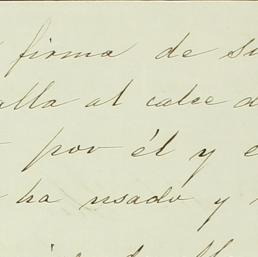 firma de su
alla al calce d
por él y e
ha usado y